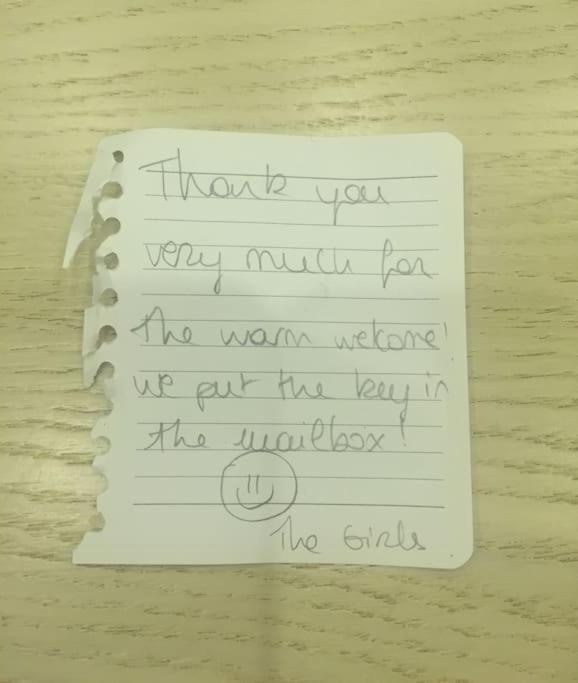 Thank you
very much for
the warm welcome!
we put the key in
the mailbox!
The Girls